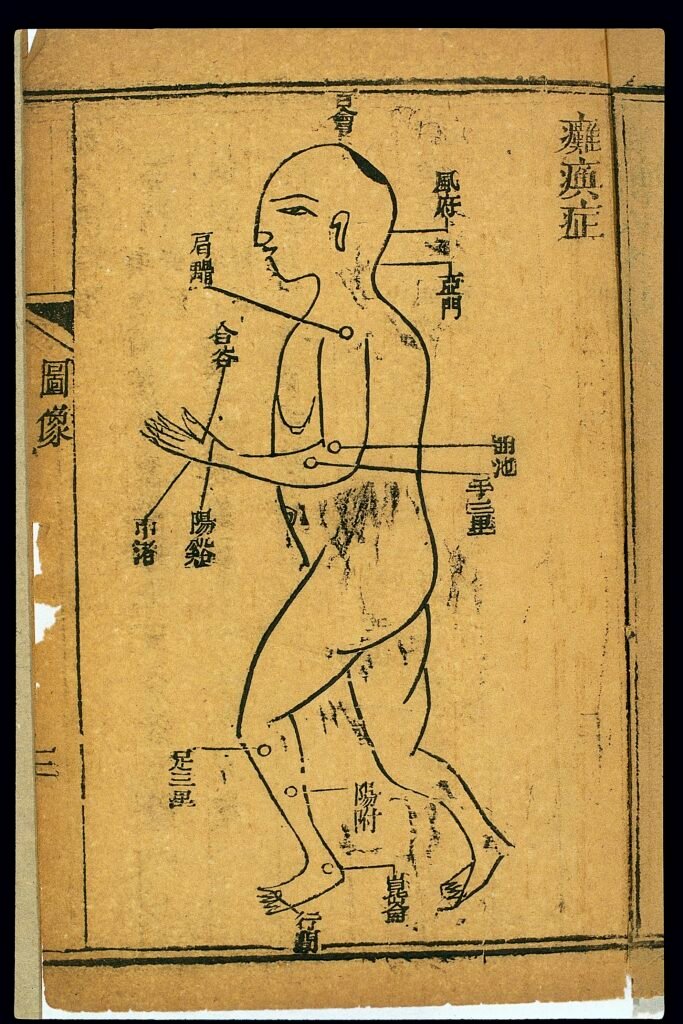 癱瘓症
百會
風府
亞門
肩髃
合谷
曲池
手三里
陽谿
足三里
陽附
崑崙
行間
圖像